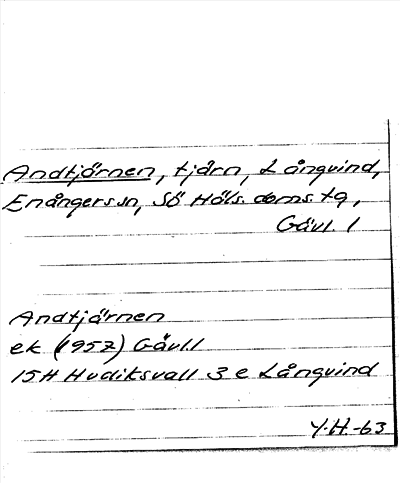 Andtjärnen, tjärn, Långvind,
Enångers sn, Sö Häls. doms. tg,
Gävl. l
Andtjärnen
ek (1957) Gävl. l
15H Hudiksvall 3 e Långvind
Y.H.-63